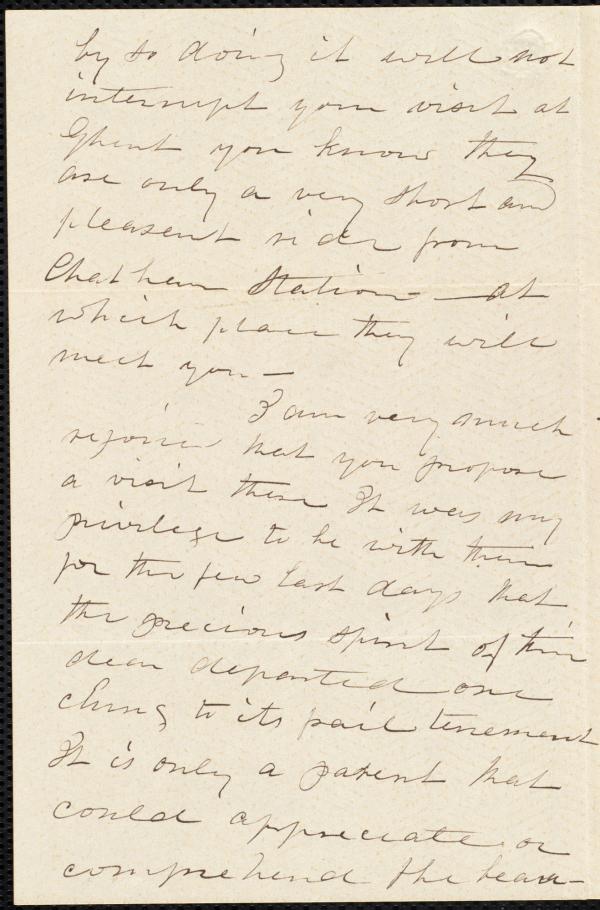 by so doing it will not
interrupt your visit at
Ghent you know they
are only a very short and
pleasent rider from
Chatham Station — at
which place they will
meet you —
I am very much
rejoiced that you propose
a visit there It was my
privilege to be with them
for the few last days that
the precious spirit of their
dear departed one
clung to its frail tenement
It is only a parent that
could appreciate or
comprehend the beau-